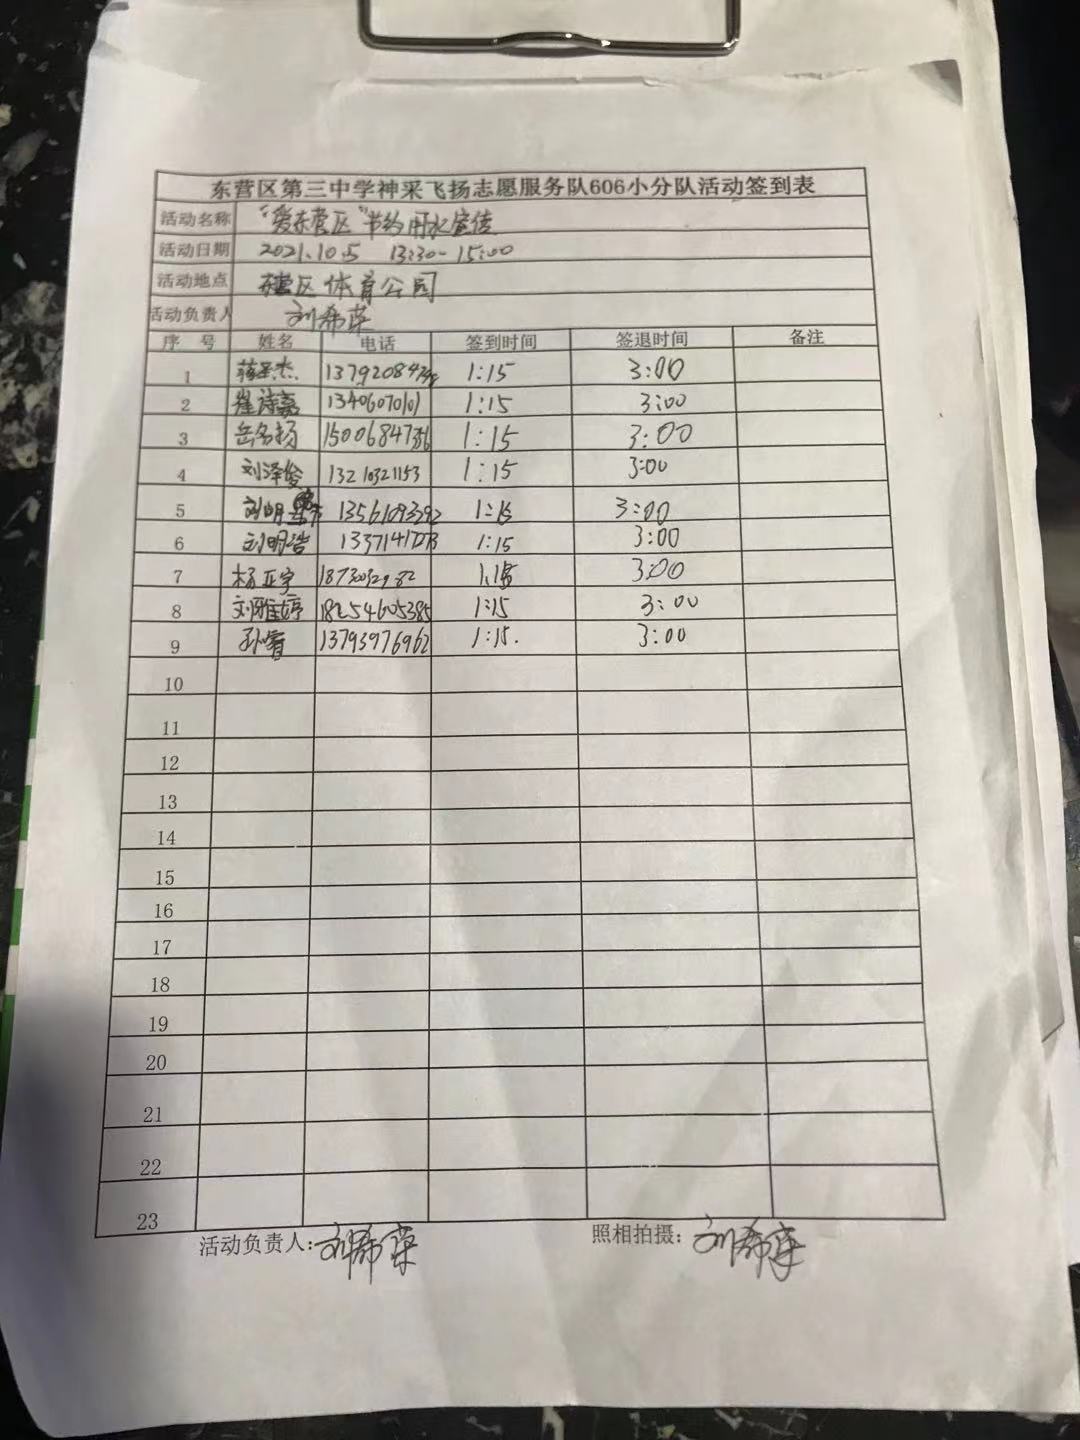 东营区第三中学神采飞扬志愿服务队606小分队活动签到表
活动名称 "爱东营区"节约用水宣传
活动日期 2021.10.5 13:30-15:00
活动地点 东营区体育公园
活动负责人 刘希荣
序 号 姓名 电话 签到时间 签退时间 备注
1 杰 1:15 3:00
2 翟诗嘉 13406070101 1:15 3:00
3 岳名扬 1:15 3:00
4 刘泽俊 13210321153 1:15 3:00
5 刘明 13561093392 1:15 3:00
6 刘明浩 1:15 3:00
7 杨亚宇 1:15 3:00
8 刘雅婷 18254605385 1:15 3:00
9 孙睿 13793976962 1:15. 3:00
10
11
12
13
14
15
16
17
18
19
20
21
22
23
活动负责人:刘希荣 照相拍摄:刘希荣